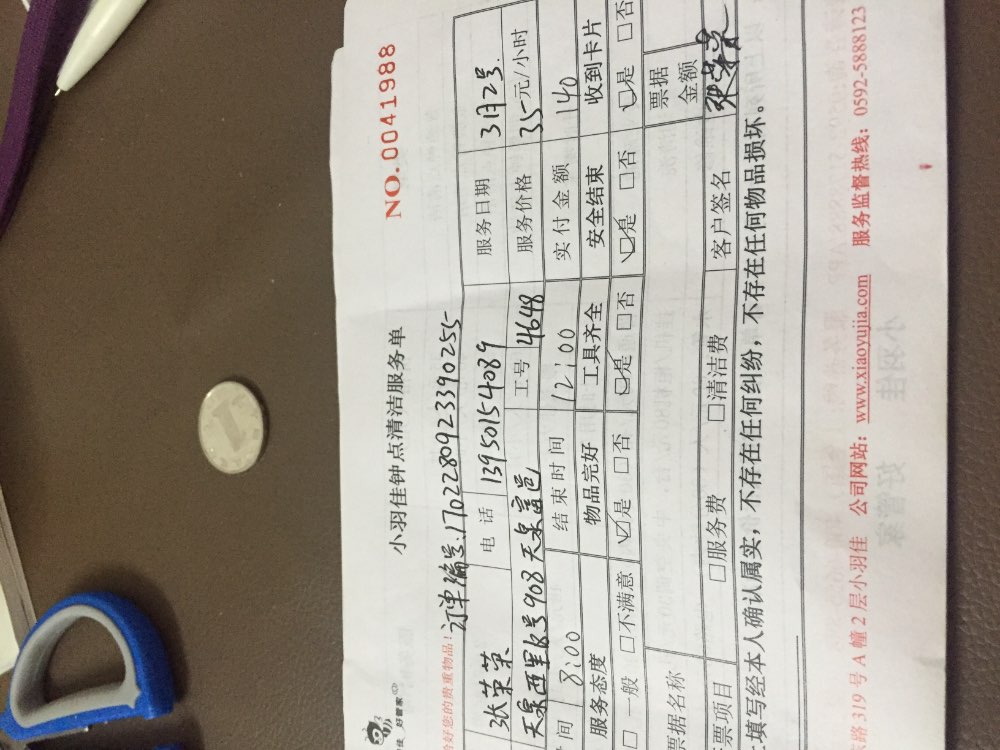 小羽佳钟点清洁服务单
NO.0041988
好管家
好您的贵重物品！
订单编号:1702280923390255
张荣荣 电话 13950154089 服务日期 3月2号.
908 工号 4648 服务价格 35元/小时
间 8:00 结束时间 12:00 实付金额 140
服务态度 物品完好 工具齐全 安全结束 收到卡片
□一般 □不满意 ☑是 □否 ☑是 □否 ☑是 □否 ☑是 □否
票据名称 票据金额
票项目 □服务费 □清洁费 客户签名 张荣荣
填写经本人确认属实，不存在任何纠纷，不存在任何物品损坏。
路319号A幢2层小羽佳 公司网站：www.xiaoyujia.com 服务监督热线：0592-5888123